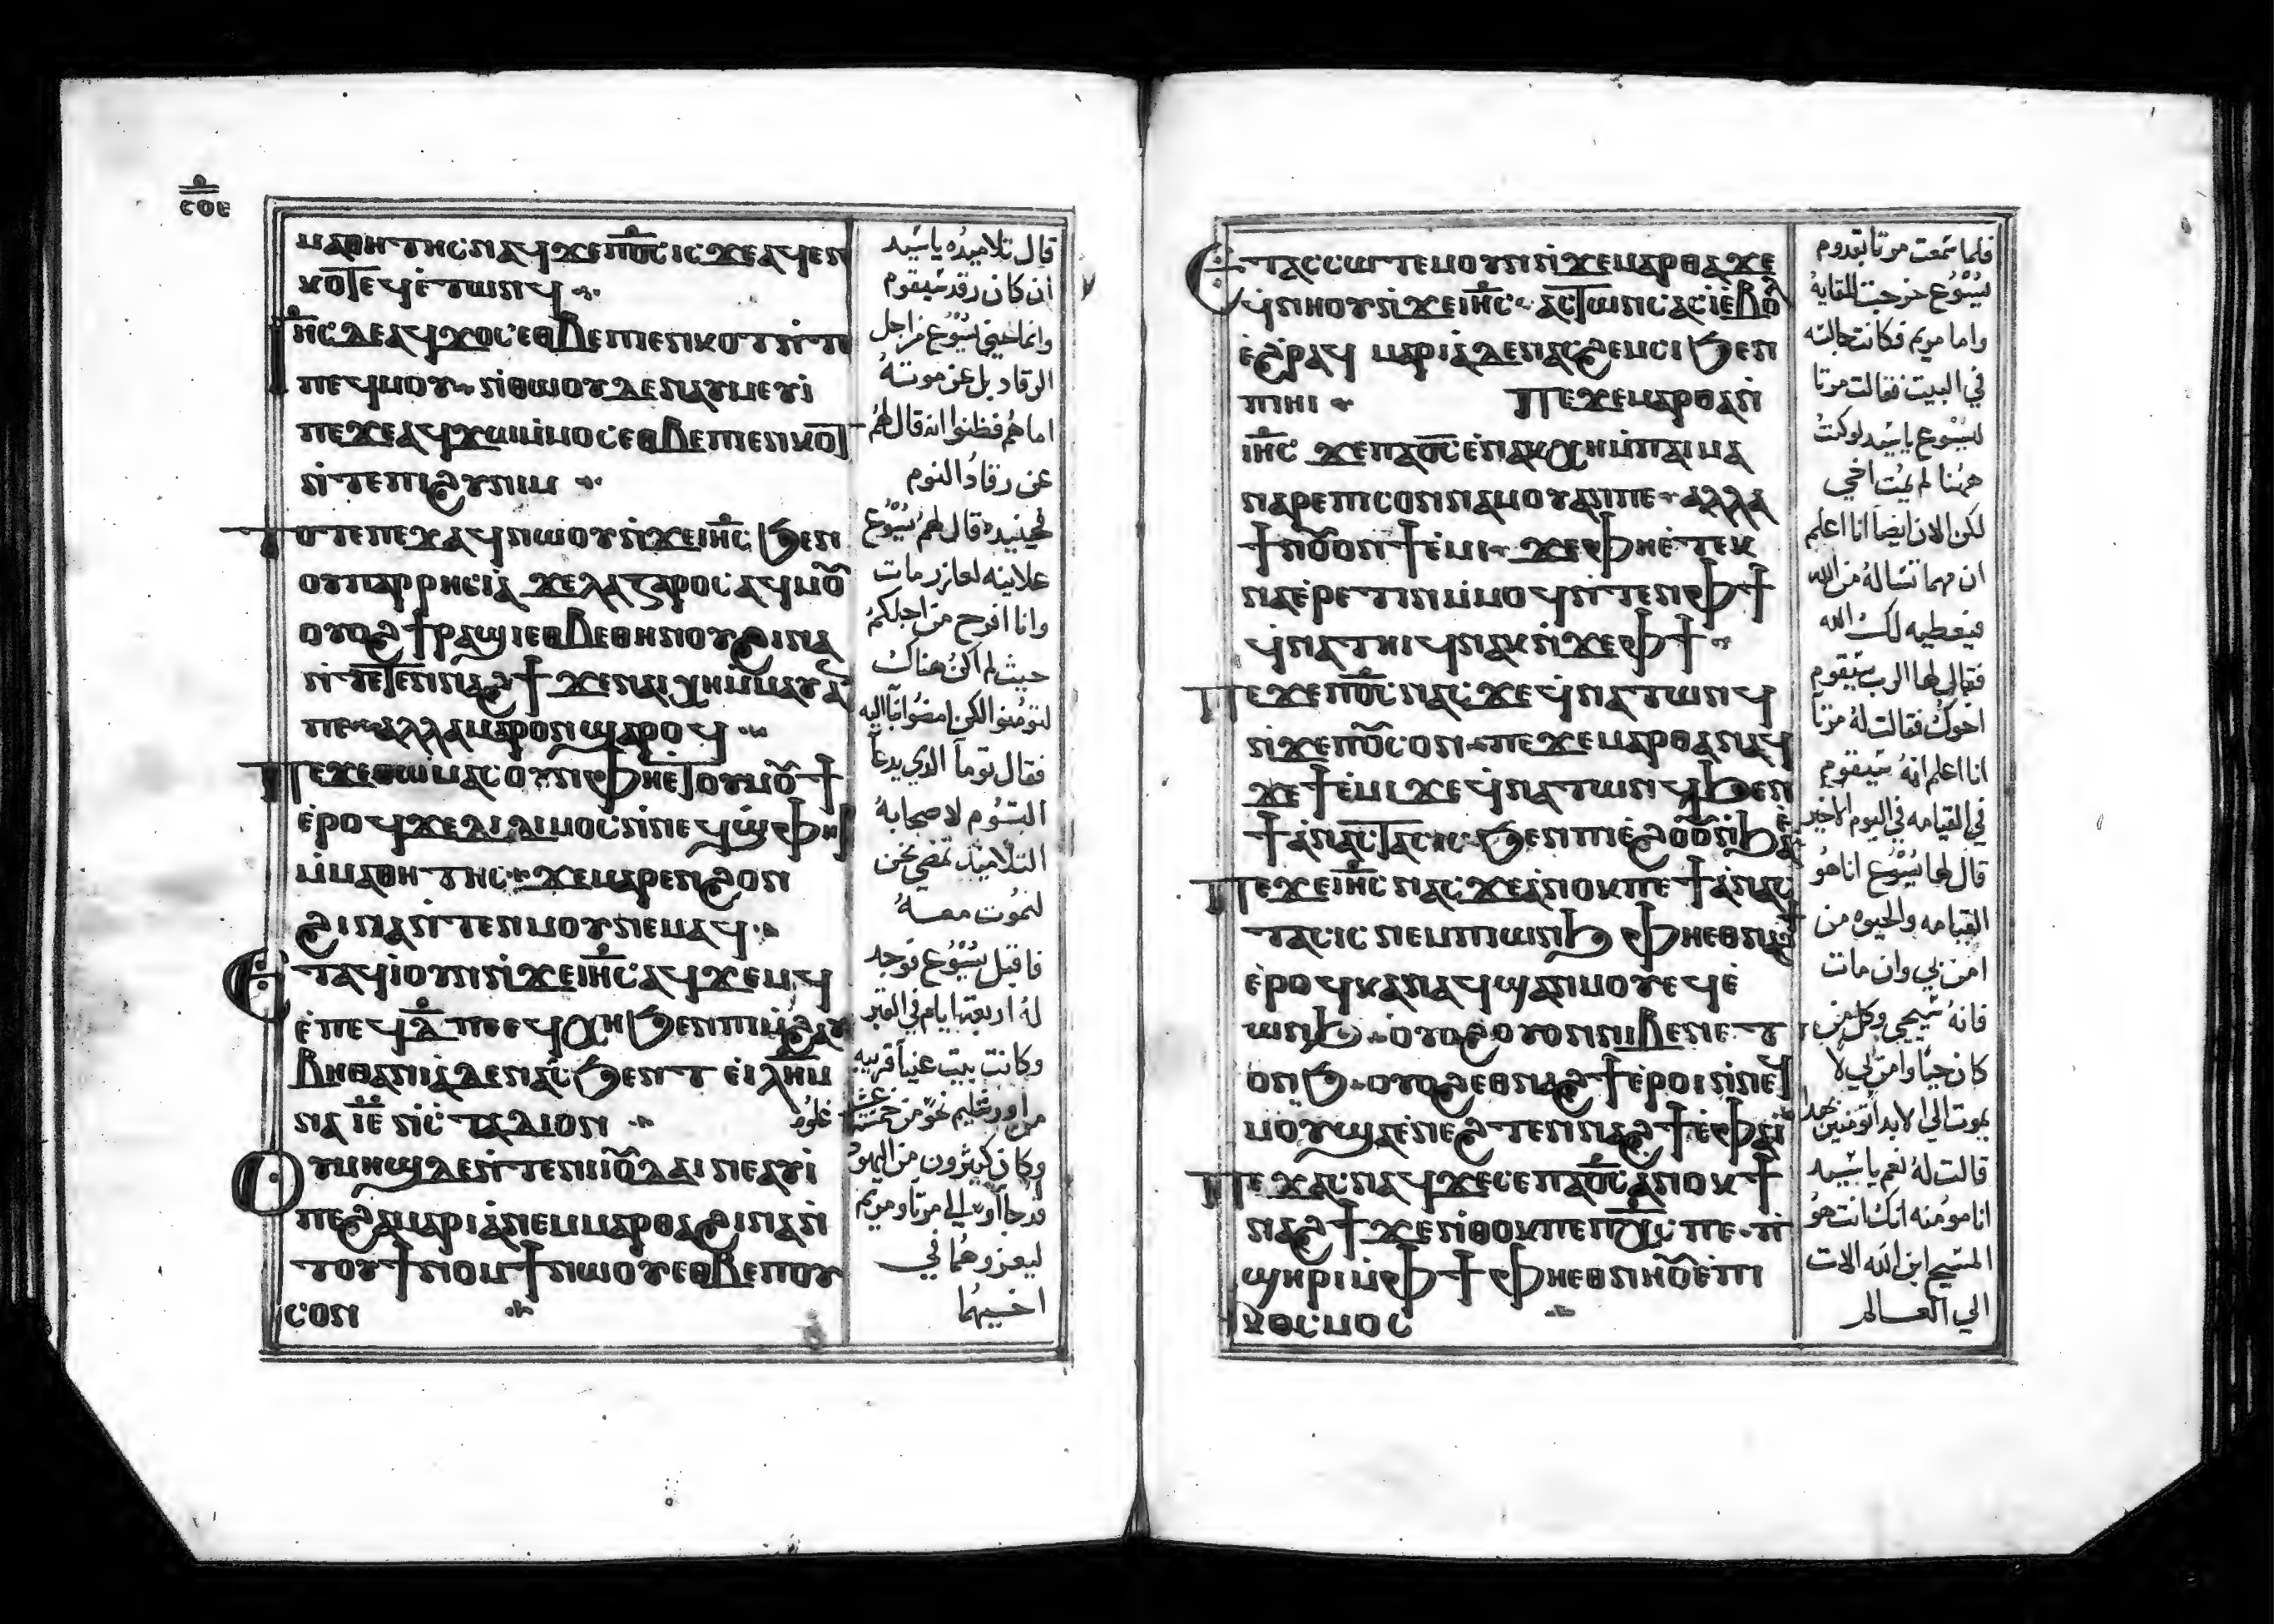 ⲥⲟⲉ
ⲙⲁⲑⲏⲧⲏⲥ ⲛⲁϥ ϫⲉ ⲡⲟ̅ⲥ̅ ⲓⲥϫⲉ ⲁϥⲉⲛ
ⲕⲟⲧ ⲉ̀ϥⲉ̀ⲧⲱⲛϥ
ⲓⲏ̅ⲥ̅ ⲇⲉ ⲁϥϫⲟⲥ ⲉⲑⲃⲉ ⲡⲉⲛⲕⲟⲧ ⲛ̀ⲧⲉ
ⲡⲉϥⲙⲟⲩ ⲛ̀ⲑⲱⲟⲩ ⲇⲉ ⲛⲁⲩⲙⲉⲩⲓ
ⲡⲉ ϫⲉ ⲁϥϫⲱ ⲙ̀ⲙⲟⲥ ⲉⲑⲃⲉ ⲡⲉⲛⲕⲟⲧ
ⲛ̀ⲧⲉ ⲡⲓϩⲩⲛⲓⲙ
ⲧⲟⲧⲉ ⲡⲉϫⲁϥ ⲛⲱⲟⲩ ⲛ̀ϫⲉ ⲓⲏ̅ⲥ̅ ϧⲉⲛ
ⲟⲩⲡⲁⲣⲣⲏⲥⲓⲁ̀ ϫⲉ ⲗⲁⲍⲁⲣⲟⲥ ⲁϥⲙⲟⲩ
ⲟⲩⲟϩ ϯⲣⲁϣⲓ ⲉⲑⲃⲉ ⲑⲏⲛⲟⲩ ϩⲓⲛⲁ
ⲛ̀ⲧⲉⲧⲉⲛⲛⲁϩϯ ϫⲉ ⲛⲁⲓⲭⲏ ⲙ̀ⲙⲁⲩ ⲁⲛ
ⲡⲉ ⲁⲗⲗⲁ ⲙⲁⲣⲟⲛ ϣⲁⲣⲟϥ
ⲡⲉϫⲉ ⲑⲱⲙⲁⲥ ⲟⲩⲛ ⲫⲏⲉⲧⲟⲩⲙⲟⲩϯ
ⲉ̀ⲣⲟϥ ϫⲉ ⲇⲓⲇⲓⲙⲟⲥ ⲛ̀ⲛⲉϥϣⲫⲏⲣ
ⲙ̀ⲙⲁⲑⲏⲧⲏⲥ ϫⲉ ⲙⲁⲣⲉⲛϩⲟⲛ
ϩⲓⲛⲁ ⲛ̀ⲧⲉⲛⲙⲟⲩ ⲛⲉⲙⲁϥ
ⲉⲧⲁϥⲓ̀ ⲟⲩⲛ ⲛ̀ϫⲉ ⲓⲏ̅ⲥ̅ ⲁϥϫⲉⲙϥ
ⲉ̀ⲡⲉϥⲇ̅ ⲡⲉ ⲉϥⲭⲏ ϧⲉⲛ ⲡⲓⲙ̀ϩⲁⲩ
ⲃⲏⲑⲁⲛⲓⲁ̀ ⲇⲉ ⲛⲁⲥϧⲉⲛⲧ ⲉ̀ⲓⲗ̅ⲏ̅ⲙ̅
ⲛⲁ ⲓ̅ⲉ̅ ⲛ̀ⲥ̀ⲧⲁⲇⲓⲟⲛ
ⲟⲩⲙⲏϣ ⲇⲉ ⲛ̀ⲧⲉ ⲛⲓⲓⲟⲩⲇⲁⲓ ⲛⲉⲁⲩⲓ̀
ⲡⲉ ϩⲁ ⲙⲁⲣⲓⲁ̀ ⲛⲉⲙ ⲙⲁⲣⲑⲁ ϩⲓⲛⲁ ⲛ̀
ⲧⲟⲩϯⲛⲟⲙϯ ⲛⲱⲟⲩ ⲉⲑⲃⲉ ⲡⲟⲩ
ⲥⲟⲛ
قال تلاميذه ياسيد
ان كان رقد سيقوم
وانما عني يسوع من اجل
الرقاد بل عن موته
اما هم فظنوا انه قال لهم
عن رقاد النوم
فحينيده قال لهم يسوع
علانيه لعازر مات
وانا افرح من اجلكم
حيث لم اكن هناك
لتومنوا لكن امضوا بنا اليه
فقال توما الذي يدعا
التوم لاصحابه
التلاميذ نمضي نحن
لنموت معه
فاقبل يسوع فوجد
له اربعة ايام في القبر
وكانت بيت عنيا قريبه
من اورشليم نحو من خمسة عشر غلوه
وكان كثيرون من اليهود
قد جاوا الي مرتا ومريم
ليعزوهما في
اخيهما
ⲉⲧⲁⲥⲥⲱⲧⲉⲙ ⲟⲩⲛ ⲛ̀ϫⲉ ⲙⲁⲣⲑⲁ ϫⲉ
ϥ̀ⲛⲏⲟⲩ ⲛ̀ϫⲉ ⲓⲏ̅ⲥ̅ ⲁⲥⲧⲱⲛⲥ ⲁⲥⲓ̀ ⲉ̀ⲃⲟⲗ
ⲉ̀ϩⲣⲁϥ ⲙⲁⲣⲓⲁ ⲇⲉ ⲛⲁⲥϩⲉⲙⲥⲓ ϧⲉⲛ
ⲡⲓⲏⲓ ⲡⲉϫⲉ ⲙⲁⲣⲑⲁ ⲛ̀
ⲓⲏ̅ⲥ̅ ϫⲉ ⲡⲁⲟ̅ⲥ̅ ⲉ̀ⲛⲁⲕⲭⲏ ⲙ̀ⲡⲁⲓⲙⲁ
ⲛⲁⲣⲉ ⲡⲓⲥⲟⲛ ⲛⲁⲙⲟⲩ ⲁⲛ ⲡⲉ ⲁⲗⲗⲁ
ϯⲛⲟⲩ ⲟⲛ ϯⲉ̀ⲙⲓ ϫⲉ ⲫⲏⲉ̀ⲧⲉⲕ
ⲛⲁⲉ̀ⲣⲉⲧⲓⲛ ⲙ̀ⲙⲟϥ ⲛ̀ⲧⲉⲛ ⲫϯ
ϥ̀ⲛⲁⲧⲏⲓϥ ⲛⲁⲕ ⲛ̀ϫⲉ ⲫϯ
ⲡⲉϫⲉ ⲡⲟ̅ⲥ̅ ⲛⲁⲥ ϫⲉ ϥ̀ⲛⲁⲧⲱⲛϥ
ⲛ̀ϫⲉ ⲡⲟⲩⲥⲟⲛ ⲡⲉϫⲉ ⲙⲁⲣⲑⲁ ⲛⲁϥ
ϫⲉ ϯⲉ̀ⲙⲓ ϫⲉ ϥ̀ⲛⲁⲧⲱⲛϥ ϧⲉⲛ
ϯⲁ̀ⲛⲁⲥⲧⲁⲥⲓⲥ ϧⲉⲛ ⲡⲓⲉ̀ϩⲟⲟⲩ ⲛ̀ϧⲁⲉ̀
ⲡⲉϫⲉ ⲓⲏ̅ⲥ̅ ⲛⲁⲥ ϫⲉ ⲁ̀ⲛⲟⲕ ⲡⲉ ϯⲁ̀ⲛⲁⲥ
ⲧⲁⲥⲓⲥ ⲛⲉⲙ ⲡⲓⲱⲛϧ ⲫⲏⲉⲑⲛⲁϩϯ
ⲉ̀ⲣⲟϥ ⲕⲁⲛ ⲁϥϣⲁⲛⲙⲟⲩ ⲉϥⲉ̀
ⲱⲛϧ ⲟⲩⲟϩ ⲟⲩⲟⲛ ⲛⲓⲃⲉⲛ ⲉⲧ
ⲟⲛϧ ⲟⲩⲟϩ ⲉⲑⲛⲁϩϯ ⲉ̀ⲣⲟⲓ ⲛ̀ⲛⲉϥ
ⲙⲟⲩ ϣⲁ ⲉ̀ⲛⲉϩ ⲧⲉⲛⲛⲁϩϯ ⲉ̀ⲫⲁⲓ
ⲡⲉϫⲁⲥ ⲛⲁϥ ϫⲉ ⲥⲉ ⲡⲁⲟ̅ⲥ̅ ⲁ̀ⲛⲟⲕ ϯ
ⲛⲁϩϯ ϫⲉ ⲛ̀ⲑⲟⲕ ⲡⲉ ⲡⲭ̅ⲥ̅ ⲡⲉ ⲡ
ϣⲏⲣⲓ ⲙ̀ⲫϯ ⲫⲏⲉⲑⲛⲏⲟⲩ ⲉ̀ⲡⲓ
ⲕⲟⲥⲙⲟⲥ
فلما سمعت مرتا بقدوم
يسوع خرجت للقايه
واما مريم فكانت جالسه
في البيت فقالت مرتا
ليسوع ياسيد لو كنت
ههنا لم يمت اخي
لكن الان ايضا انا اعلم
ان مهما تساله من الله
فيعطيه لك الله
فقال لها الرب سيقوم
اخوك فقالت له مرتا
انا اعلم انه سيقوم
في القيامه في اليوم الاخير
قال لها يسوع انا هو
القيامه والحيوه من
امن بي وان مات
فانه سيحيي وكل من
كان حيا وامن بي لا
يموت الي الابد اتومنين بهدا
قالت له نعم ياسيد
انا مومنه انك انت هو
المسيح ابن الله الات
الي العالم